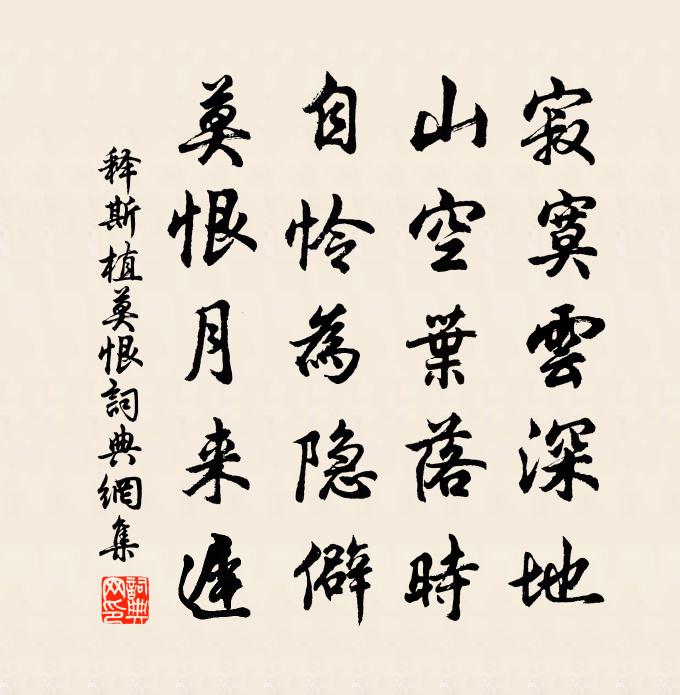 寂寞雲深地
山空葉落時
自怜為隐僻
莫恨月来遲
释斯植莫恨詞典網集
詞典
网印